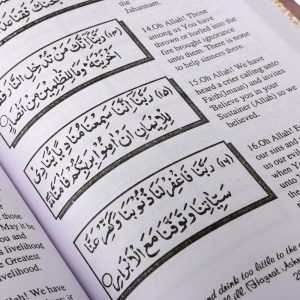 (۱۳) رَبَّنَا إِنَّكَ مَنْ تُدْخِلِ النَّارَ
أَخْزَيْتَهُ وَمَا لِلظَّالِمِينَ مِنْ أَنْصَارٍ
(۱۵) رَبَّنَا إِنَّنَا سَمِعْنَا مُنَادِيًا يُنَادِي
لِلْإِيمَانِ أَنْ آمِنُوا بِرَبِّكُمْ فَآمَنَّا
(۱۶) رَبَّنَا فَاغْفِرْ لَنَا ذُنُوبَنَا وَكَفِّرْ عَنَّا
سَيِّئَاتِنَا وَتَوَفَّنَا مَعَ الْأَبْرَارِ
Jahannam.
14.Oh Allah! Those
among us You have
thrown or hurled into the
fire brought ignorance
unto them. There is none
to help sinners there.
15.Oh Allah! We have
heard a crier calling unto
Faith(Imaan) and inviting
Believe you in your
Sustainer (Allah) so we
believed.
16.Oh Allah!
our sins and
us our evi
and cause
with the
drink too little to the
Those
May it be
the
livelihood
the Greatest
livelihood.
We have